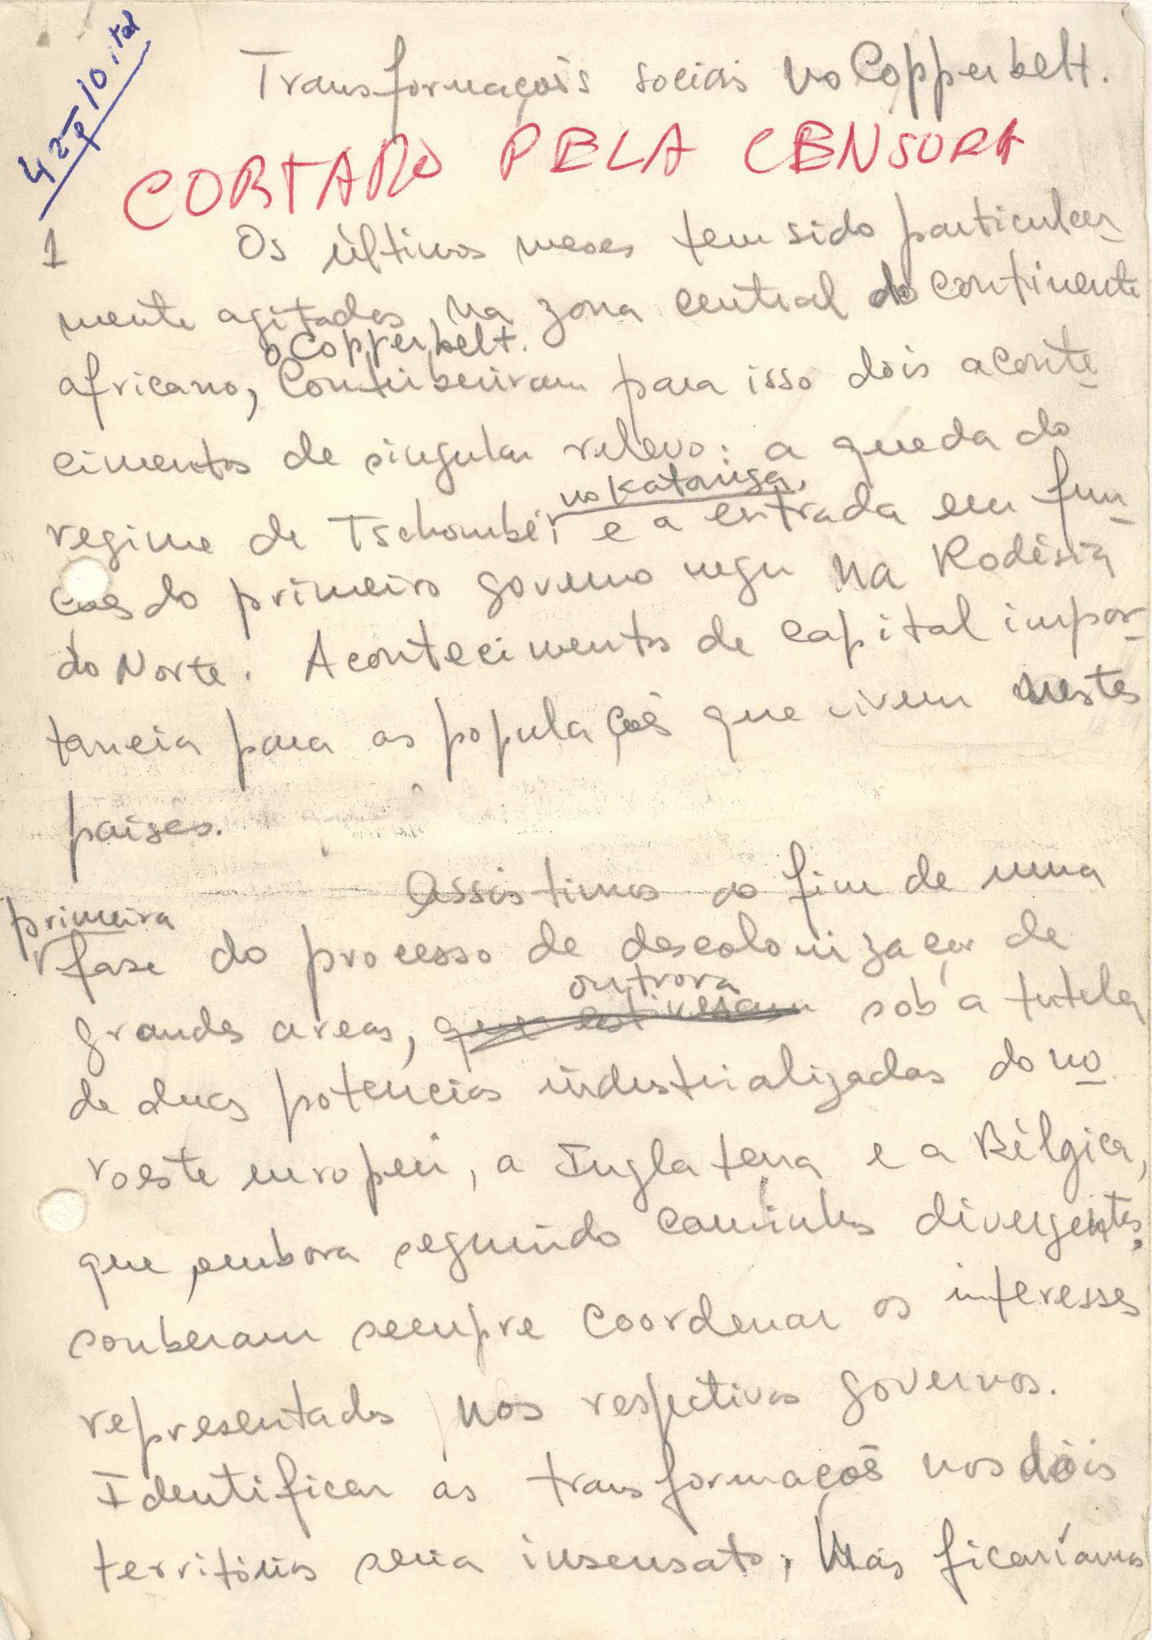 42 p 10 ital
Transformações sociais no Copperbelt.
CORTADO PELA CENSURA
1 Os últimos meses tem sido particular-
mente agitados na zona central do continente
o Copperbelt.
africano, Contribuiram para isso dois aconte-
cimentos de singular relevo: a queda do
no Katanga,
regime de Tschombé, e a entrada em fun-
ções do primeiro governo negro na Rodésia
do Norte. Acontecimentos de capital impor-
tancia para as populações que vivem nestes
países.
Assistimos ao fim de uma
primeira
fase do processo de descolonização de
outrora
grandes areas, que estiveram sob a tutela
de duas potencias industrializadas do no-
roeste europeu, a Inglaterra e a Bélgica,
que, embora seguindo caminhos divergentes,
souberam sempre coordenar os interesses
representados nos respectivos governos.
Identificar as transformações nos dois
territórios seria insensato, Mas ficaríamos